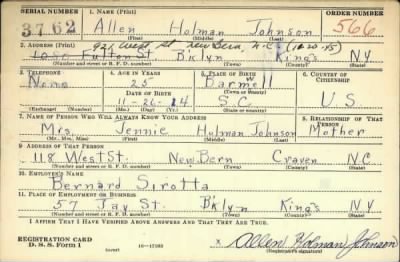 SERIAL NUMBER 1. NAME (Print) ORDER NUMBER
3762 Allen Holman Johnson 566
(First) (Middle) (Last)
2. ADDRESS (Print) 921 West St New Bern, N.C. (10-20-45)
Fulton St. B'klyn King's N.Y
(Number and street or R. F. D. number) (Town) (County) (State)
3. TELEPHONE 4. AGE IN YEARS 5. PLACE OF BIRTH 6. COUNTRY OF CITIZENSHIP
None 25 Barnwell
DATE OF BIRTH (Town or county)
11-26-14 S.C. U.S.
(Exchange) (Number) (Mo.) (Day) (Yr.) (State or country)
7. NAME OF PERSON WHO WILL ALWAYS KNOW YOUR ADDRESS 8. RELATIONSHIP OF THAT PERSON
Mrs. Jennie Hulman Johnson Mother
(Mr., Mrs., Miss) (First) (Middle) (Last)
9. ADDRESS OF THAT PERSON
118 West St. New Bern Craven N.C.
(Number and street or R. F. D. number) (Town) (County) (State)
10. EMPLOYER'S NAME
Bernard Sirotta
11. PLACE OF EMPLOYMENT OR BUSINESS
57 Jay St. B'klyn King's N.Y
(Number and street or R. F. D. number) (Town) (County) (State)
I AFFIRM THAT I HAVE VERIFIED ABOVE ANSWERS AND THAT THEY ARE TRUE.
REGISTRATION CARD
D. S. S. Form 1 (over) 16—17105 x Allen Holman Johnson
(Registrant's signature)